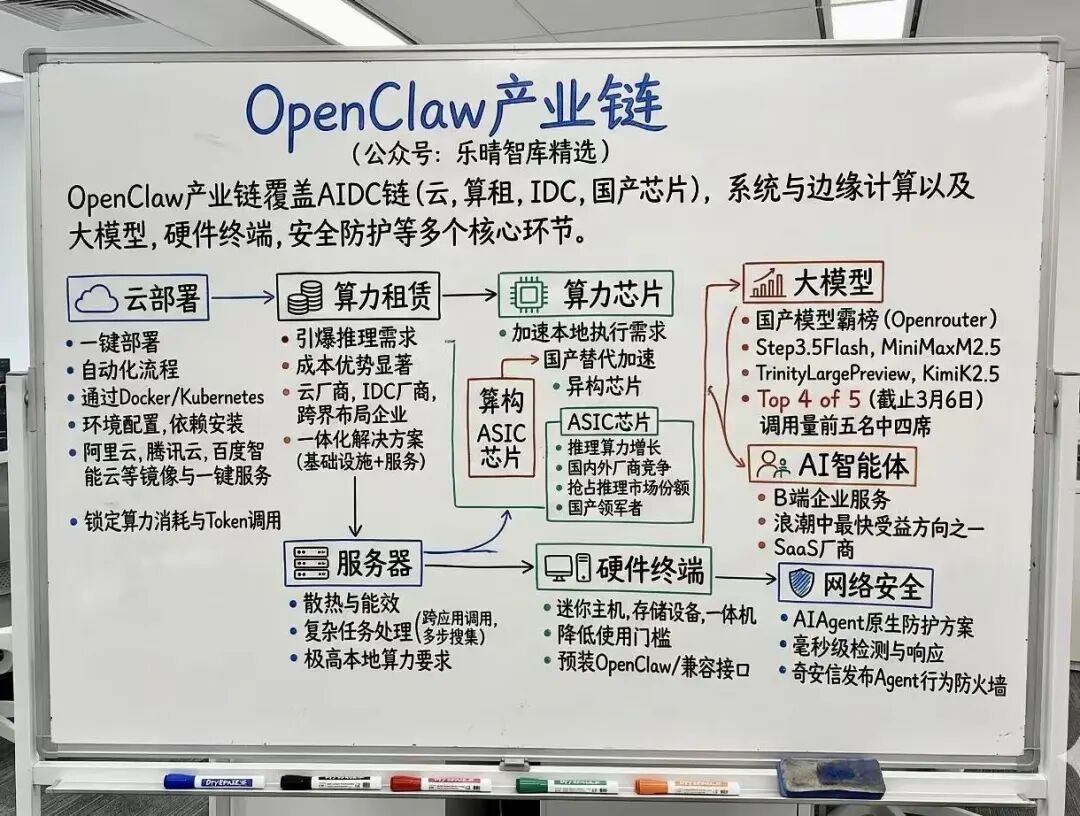 OpenClaw产业链
(公众号：乐晴智库精选)
OpenClaw产业链覆盖AIDC链(云,算租,IDC,国产芯片)，系统与边缘计算以及
大模型,硬件终端,安全防护等多个核心环节。
云部署
• 一键部署
• 自动化流程
• 通过Docker/Kubernetes
• 环境配置,依赖安装
• 阿里云,腾讯云,百度智
能云等镜像与一键服务
• 锁定算力消耗与Token调用
算力租赁
• 引爆推理需求
• 成本优势显著
• 云厂商,IDC厂商,
跨界布局企业
• 一体化解决方案
(基础设施+服务)
算力芯片
• 加速本地执行需求
国产替代加速
• 异构芯片
算构
ASIC
芯片
ASIC芯片
• 推理算力增长
• 国内外厂商竞争
• 抢占推理市场份额
• 国产领军者
大模型
• 国产模型霸榜(Openrouter)
• Step3.5Flash, MiniMaxM2.5
• TrinityLargePreview, KimiK2.5
• Top 4 of 5 (截止3月6日)
调用量前五名中四席
AI智能体
• B端企业服务
• 浪潮中最快受益方向之一
• SaaS厂商
服务器
• 散热与能效
• 复杂任务处理(跨应用调用,
多步搜集)
• 极高本地算力要求
硬件终端
• 迷你主机,存储设备,一体机
• 降低使用门槛
• 预装OpenClaw/兼容接口
网络安全
• AIAgent原生防护方案
• 毫秒级检测与响应
• 奇安信发布Agent行为防火墙